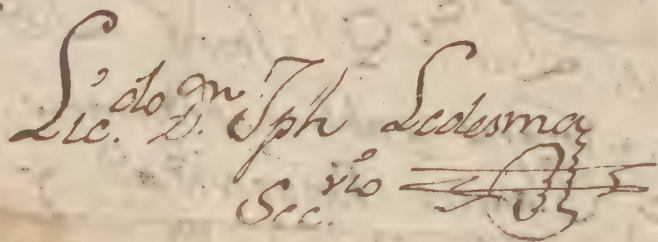 Lic.do D.n Jph Ledesma
Sec.rio